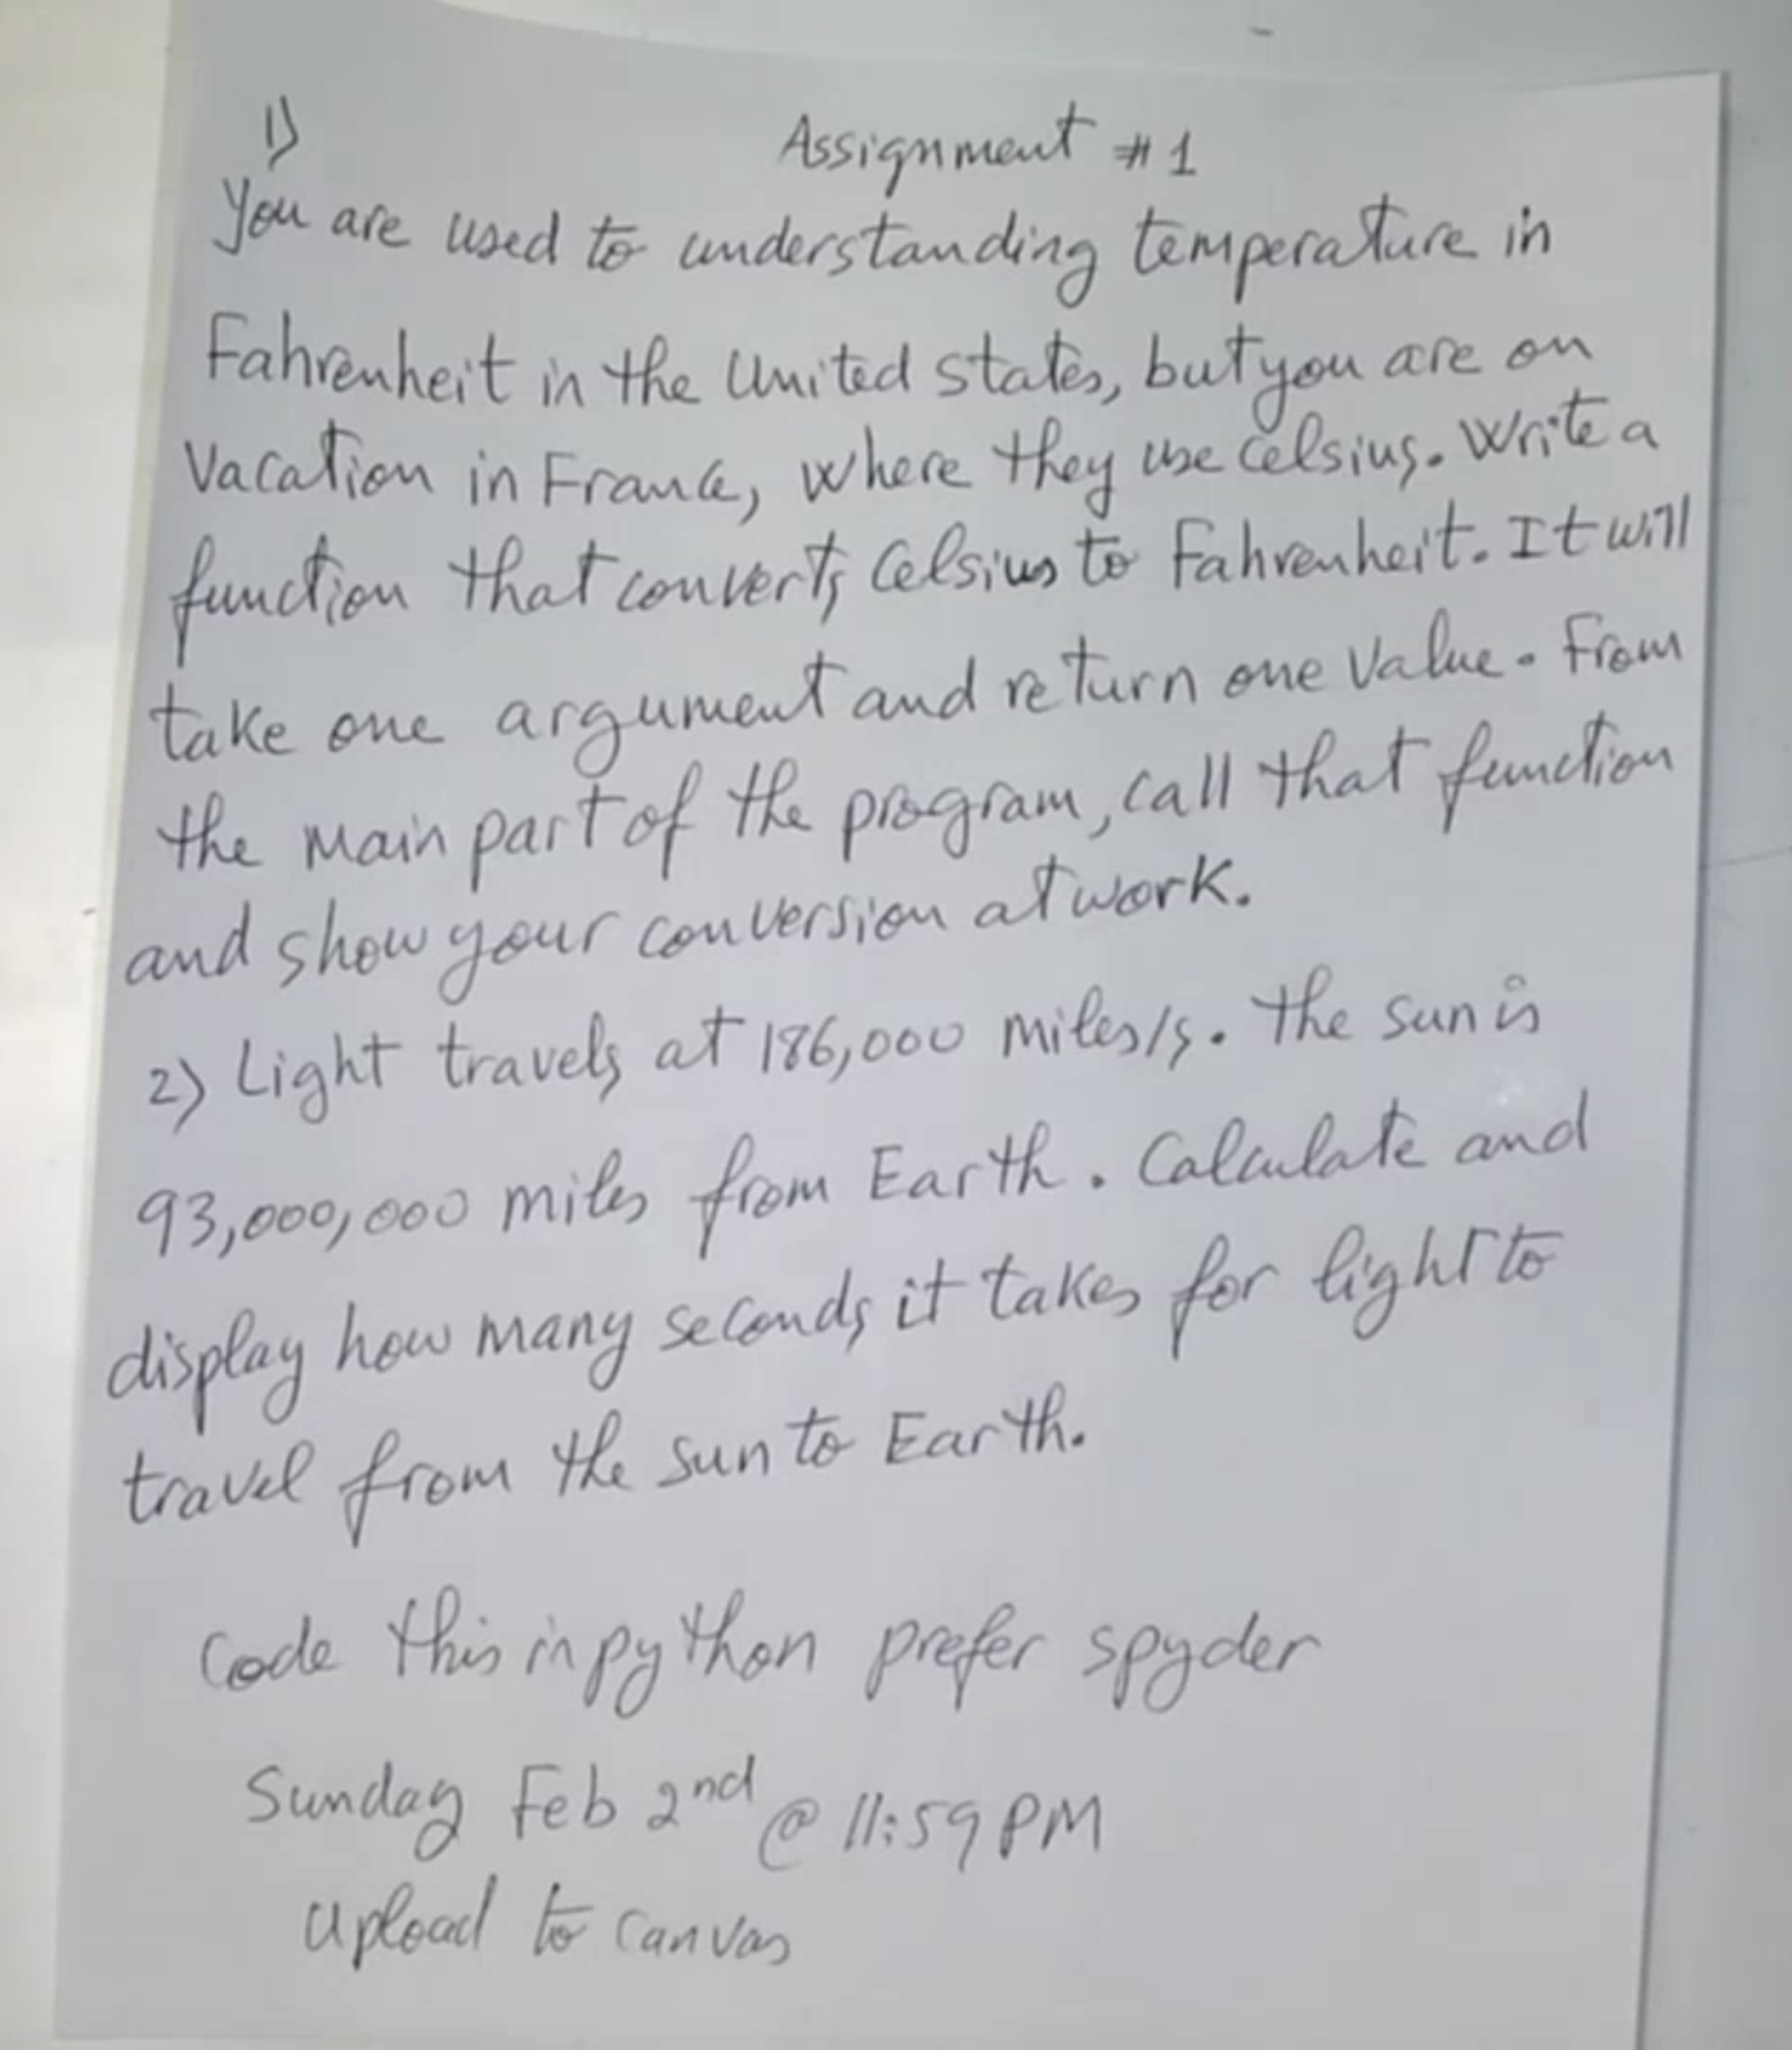 1) Assignment #1
You are used to understanding temperature in
Fahrenheit in the United States, but you are on
Vacation in France, where they use Celsius. Write a
function that converts Celsius to Fahrenheit. It will
take one argument and return one value. From
the main part of the program, call that function
and show your conversion at work.
2) Light travels at 186,000 miles/s. The sun is
93,000,000 miles from Earth. Calculate and
display how many seconds it takes for light to
travel from the sun to Earth.
Code this in python prefer spyder
Sunday Feb 2nd @ 11:59 PM
Upload to Canvas